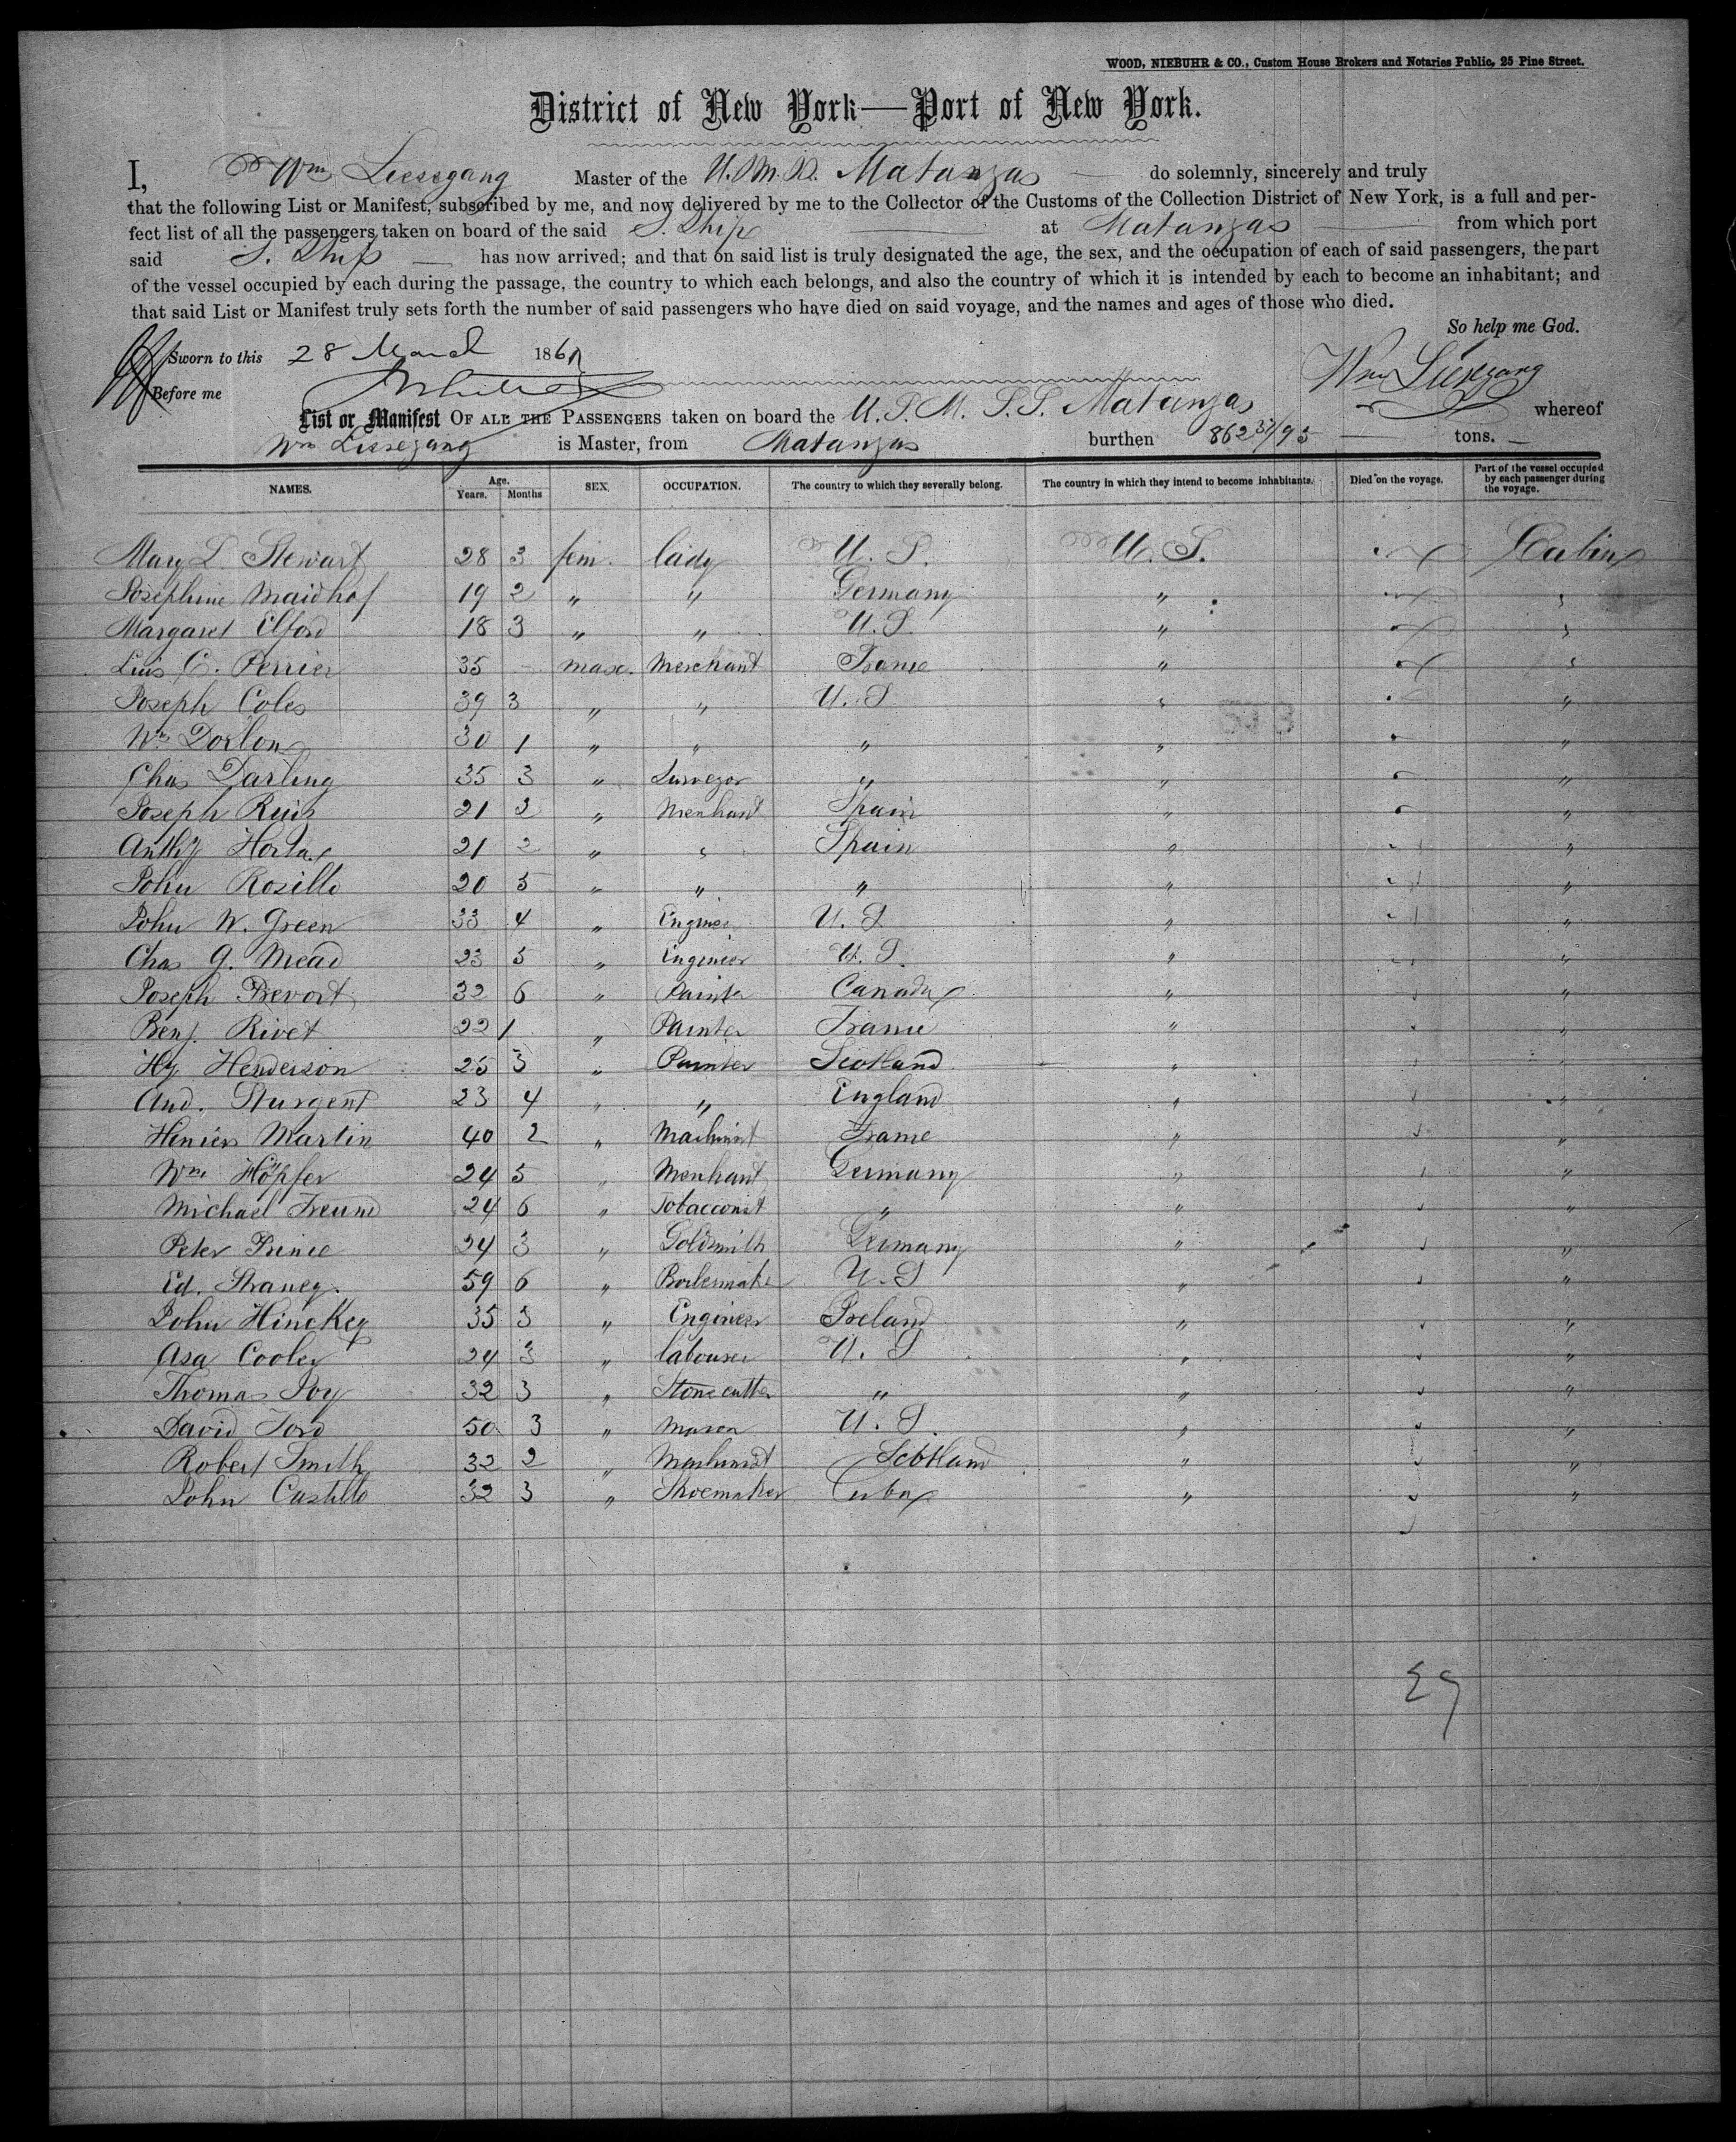 WOOD, NIEBUHR & CO., Custom House Brokers and Notaries Public, 25 Pine Street.
District of New York—Port of New York.
I, Wm Liesegang Master of the U.S.M.S. Matanzas do solemnly, sincerely and truly
that the following List or Manifest, subscribed by me, and now delivered by me to the Collector of the Customs of the Collection District of New York, is a full and per-
fect list of all the passengers taken on board of the said S. Ship at Matanzas from which port
said S. Ship has now arrived; and that on said list is truly designated the age, the sex, and the occupation of each of said passengers, the part
of the vessel occupied by each during the passage, the country to which each belongs, and also the country of which it is intended by each to become an inhabitant; and
that said List or Manifest truly sets forth the number of said passengers who have died on said voyage, and the names and ages of those who died.
So help me God.
Sworn to this 28 March 186
Wm Liesegang
Before me
List or Manifest OF ALL THE PASSENGERS taken on board the U.S.M. S.S. Matanzas whereof
Wm Liesegang is Master, from Matanzas burthen 862 /95 tons.
NAMES. Age. Years. Months SEX. OCCUPATION. The country to which they severally belong. The country in which they intend to become inhabitants. Died on the voyage. Part of the vessel occupied by each passenger during the voyage.
Mary L. Stewart 28 3 fem. lady U. S. U. S. Cabin
Josephine Maidhof 19 2 " " Germany "
Margaret Elford 18 3 " " U.S. "
Luis C. Perrier 35 masc. Merchant France "
Joseph Coles 39 3 " " U.S " "
Wm Dorlon 30 1 " " " " "
Chas Darling 35 3 " Surveyor " " "
Joseph Ruis 21 2 " Merchant Spain " "
Anthy Horta 21 2 " " Spain " "
John Rosillo 20 5 " " " " "
John W. Green 33 4 " Engineer U. S " "
Chas G. Mead 23 5 " Engineer U. S. " "
Joseph Prevort 32 6 " Painter Canada " "
Benj. Rivet 22 1 " Painter France " "
Hy Henderson 25 3 " Painter Scotland " "
And. Sturgent 23 4 " " England " "
Henier Martin 40 2 " Machinist France " "
Wm. Höpfer 24 5 " Merchant Germany " "
Michael Freund 24 6 " Tobacconist " " "
Peter Prince 24 3 " Goldsmith Germany " "
Ed. Straney. 59 6 " Boilermaker U. S " "
John Hinckey 35 3 " Engineer Ireland " "
Asa Cooley 24 3 " labourer U. S " "
Thomas Poy 32 3 " Stonecutter " " "
David Ford 50 3 " mason U. S. " "
Robert Smith 32 2 " Machinist Scotland " "
John Castillo 32 3 " Shoemaker Cuba " "